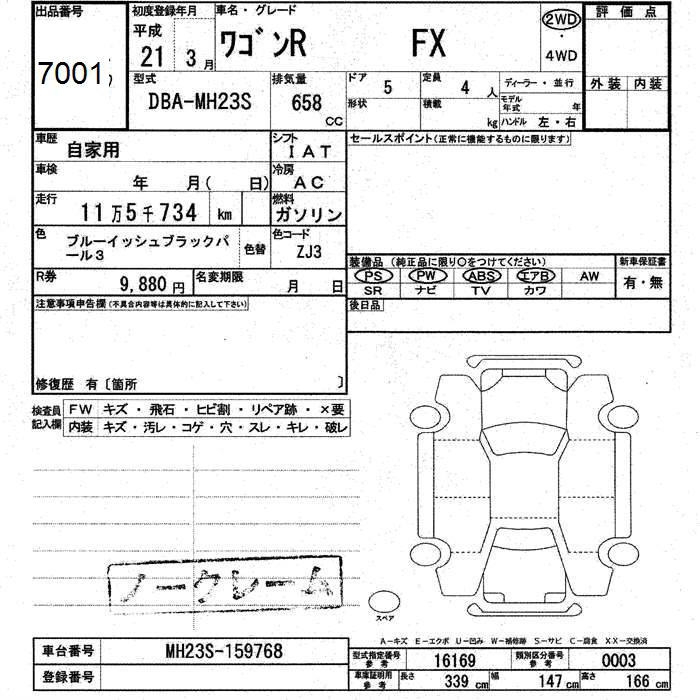 出品番号
7001
初度登録年月
平成
21 3月
車名・グレード
ワゴンR FX
2WD
・
4WD
評価点
外装 内装
型式
DBA-MH23S
排気量
658
CC
ドア 5
定員 4人
形状
積載 kg
ディーラー・並行
モデル年式 年
ハンドル 左・右
車歴
自家用
シフト
IAT
セールスポイント(正常に機能するものに限ります)
車検
年 月( 日)
冷房
AC
走行
11万5千734 km
燃料
ガソリン
色
ブルーイッシュブラックパ
ール3
色替
色コード
ZJ3
装備品 (純正品に限り○をつけてください)
PS PW ABS エアB AW
SR ナビ TV カワ
新車保証書
有・無
R券
9,880円
名変期限
月 日
後日品
注意事項申告欄(不具合内容等は具体的に記入して下さい)
修復歴 有〔箇所 〕
検査員
記入欄
FW キズ・飛石・ヒビ割・リペア跡・×要
内装 キズ・汚レ・コゲ・穴・スレ・キレ・破レ
ノークレーム
スペア
A－キズ E－エクボ U－凹み W－補修跡 S－サビ C－腐食 XX－交換済
車台番号
MH23S-159768
登録番号
型式指定番号
参考
16169
類別区分番号
参考
0003
車庫証明用
参考
長さ 339 cm
幅 147 cm
高さ 166 cm